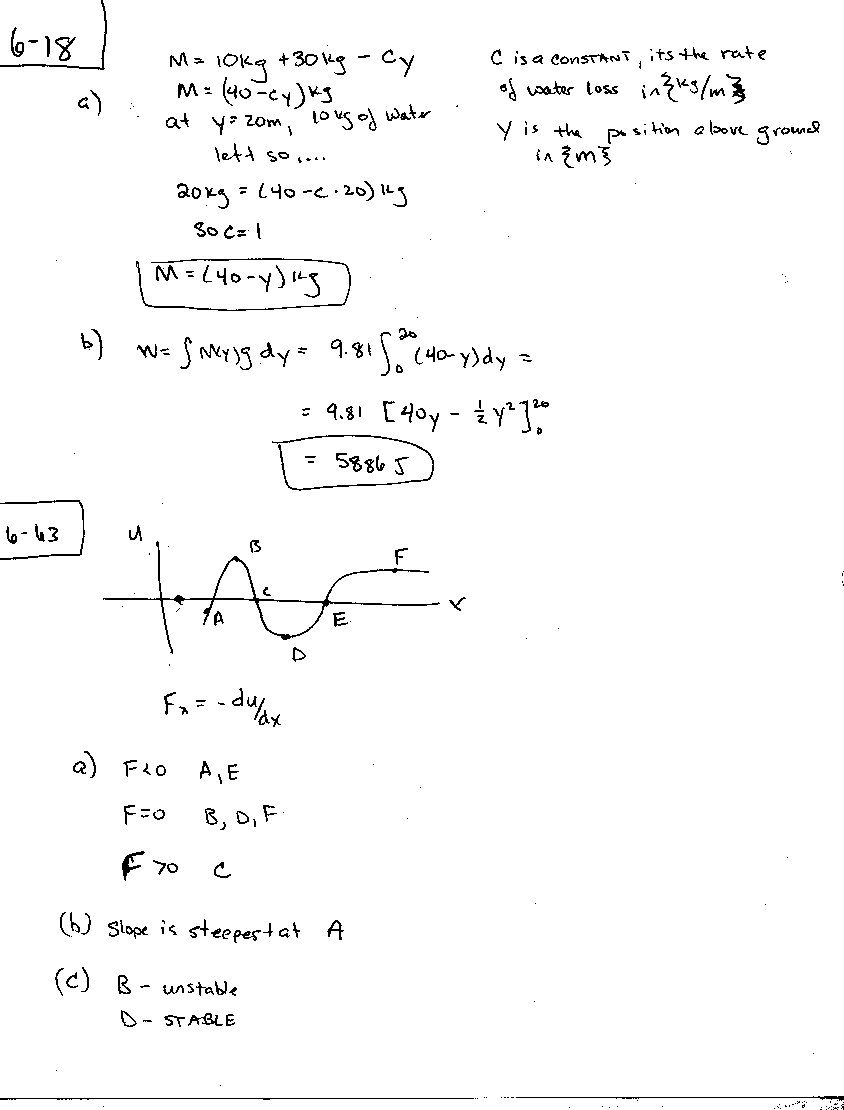 6-18
M = 10kg + 30kg - Cy
C is a CONSTANT, its the rate
of water loss in {kg/m}
a)
M = (40-cy) kg
at y = 20m, 10 kg of water
left so....
Y is the position above ground
in {m}
20kg = (40-c·20) kg
so c = 1
M = (40-y) kg
b) W = ∫ M(y)g dy = 9.81 ∫₀²⁰ (40-y)dy =
= 9.81 [40y - ½y²]₀²⁰
= 5886 J
6-63
U
B
F
C
A
E
x
D
Fx = -du/dx
a) F<0 A, E
F=0 B, D, F
F>0 C
(b) Slope is steepest at A
(c) B - unstable
D - STABLE